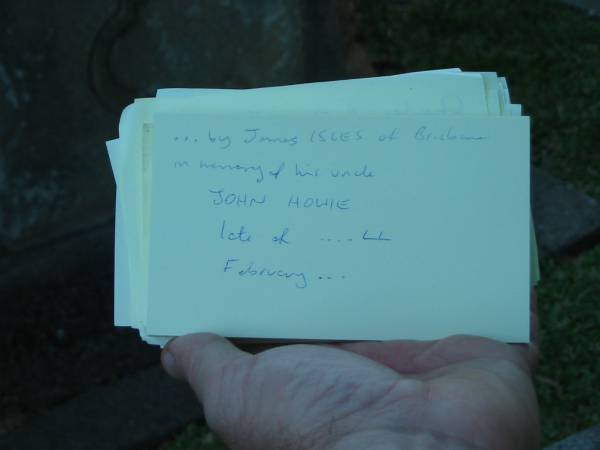 ... by James ISLES of Brisbane
in memory of his uncle
JOHN HOWIE
late of ....
February ...